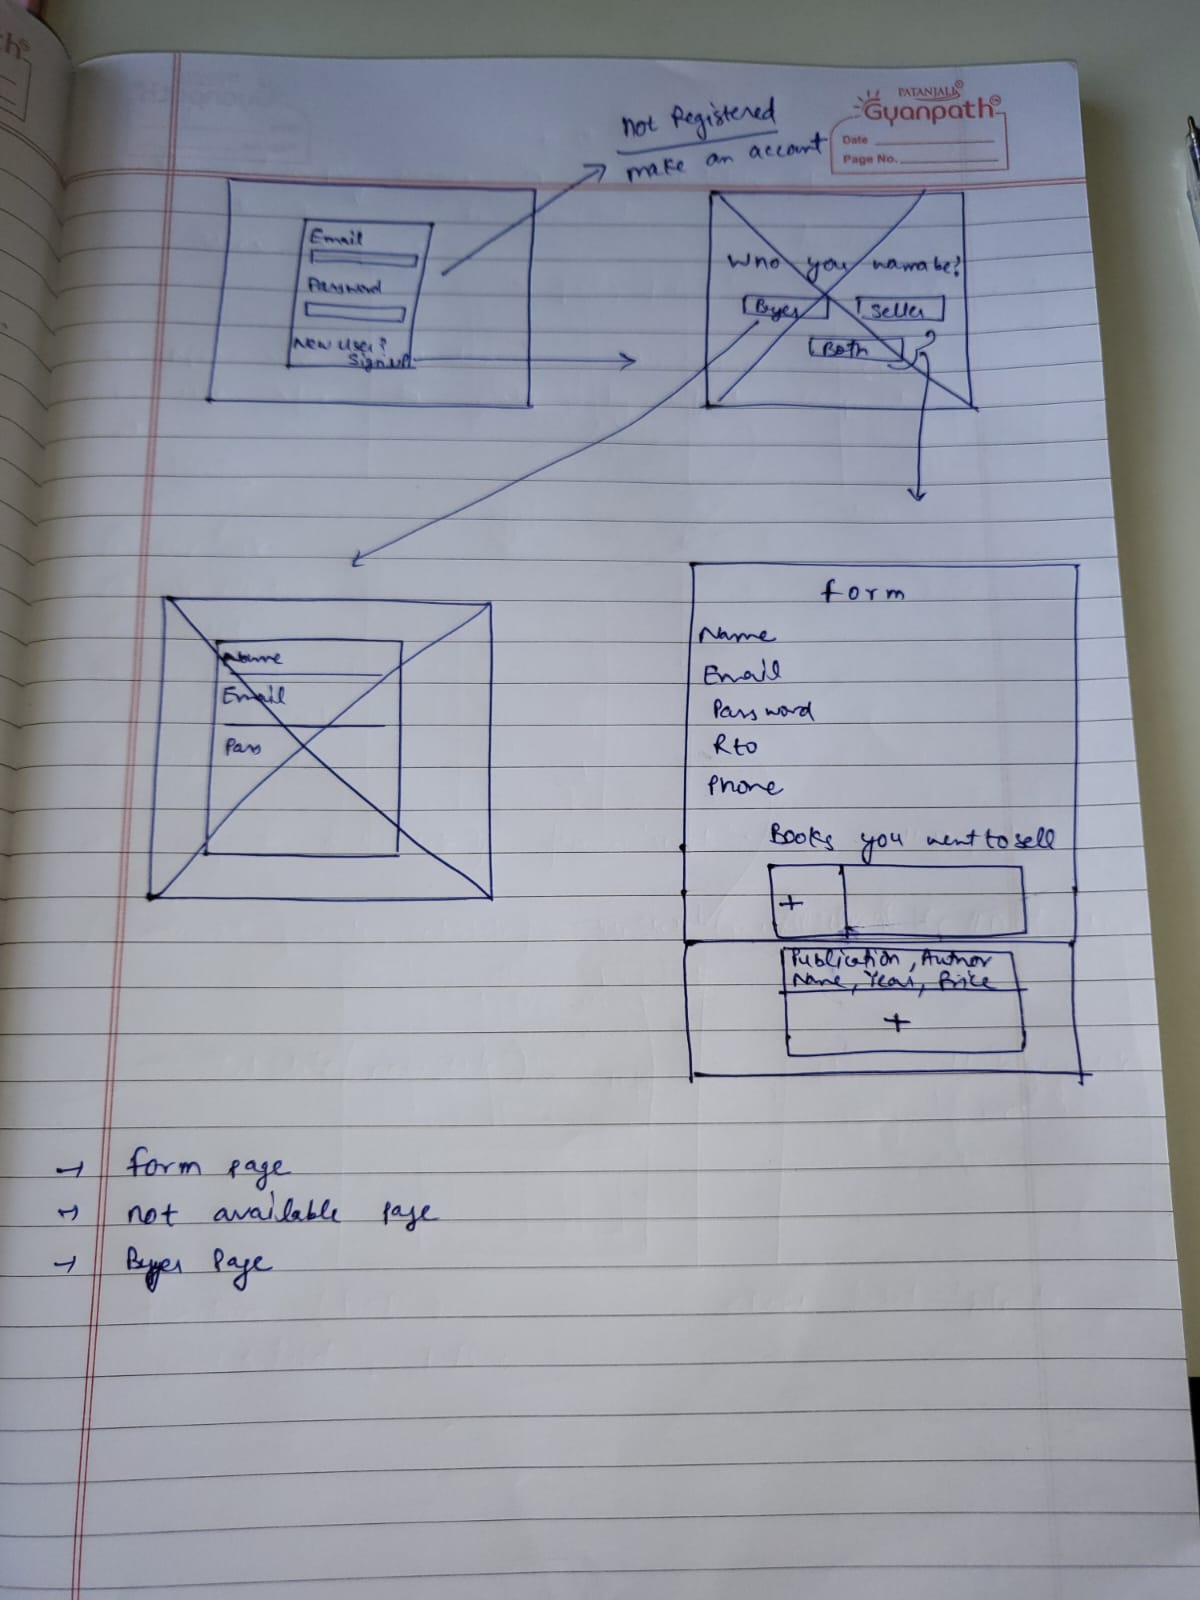 PATANJALI
Gyanpath
Date
Page No.
not Registered
make an account
Email
Password
New User?
Signup
Who you wanna be?
Byer
Seller
Both
Name
Email
Pass
form
Name
Email
Password
Rto
Phone
Books you want to sell
+
Publication, Author
Name, Year, Price
+
→ form page
→ not available page
→ Byer Page